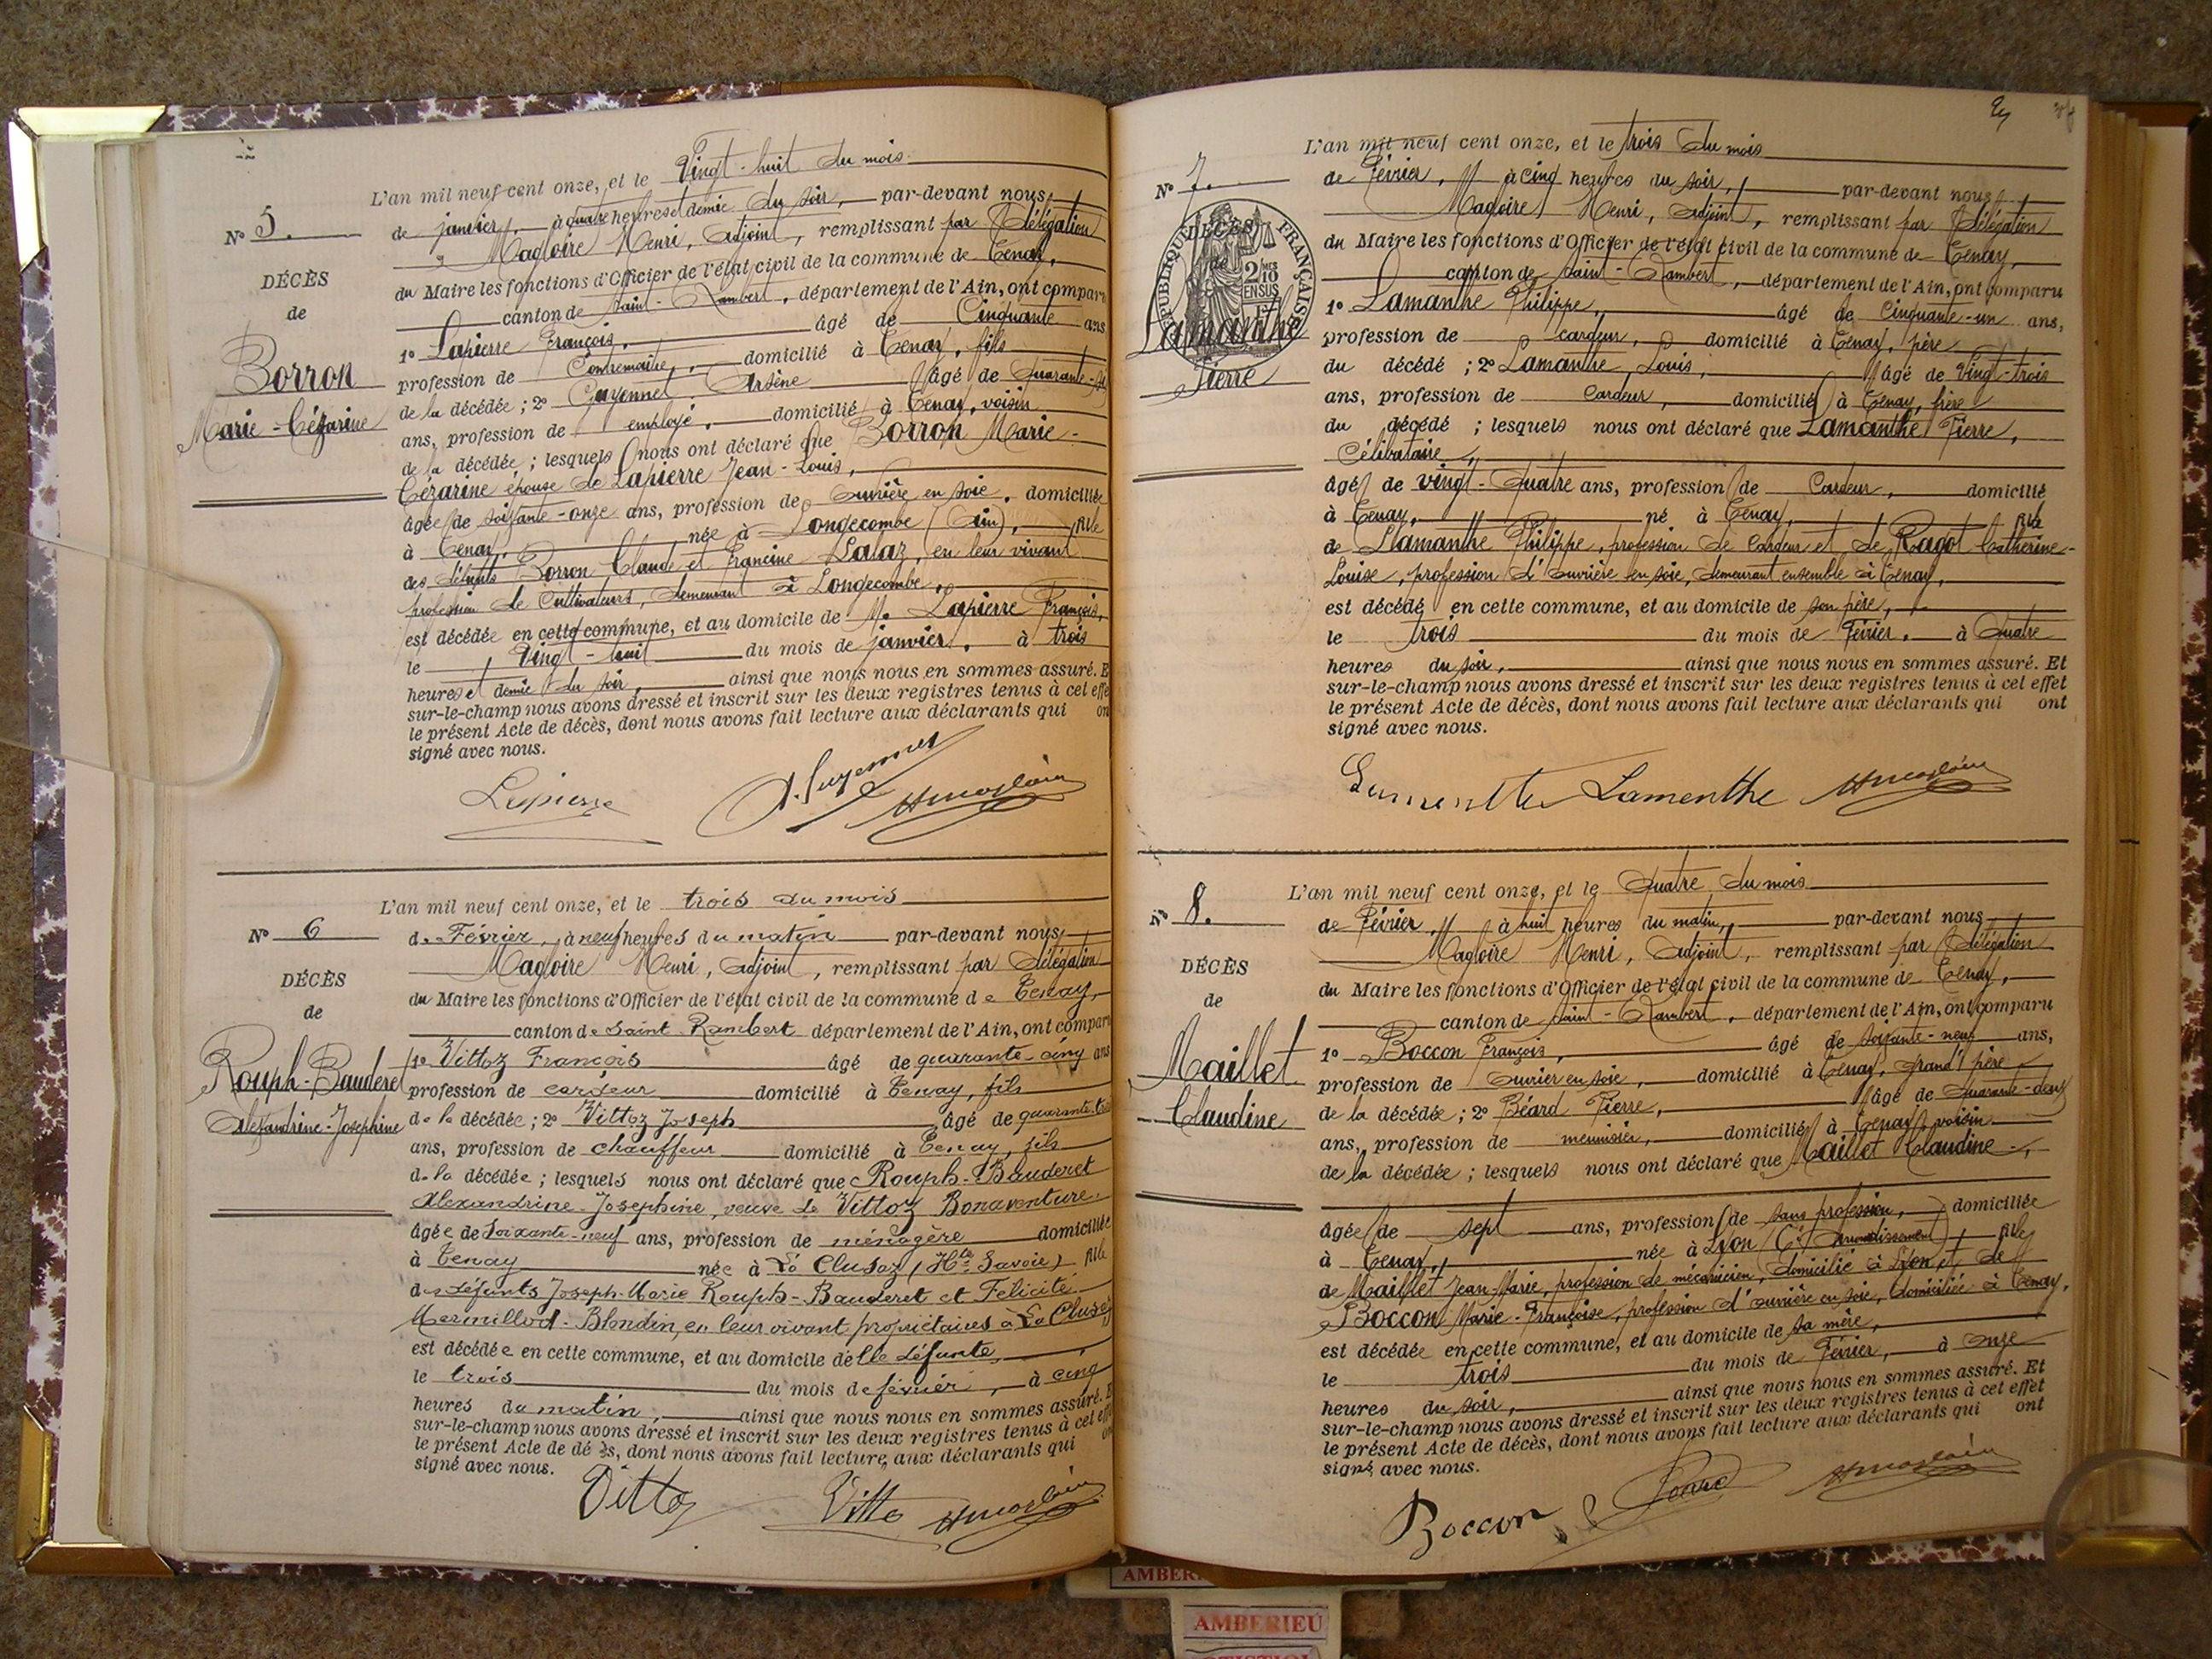 L'an mil neuf cent onze, et le Vingt-huit du mois
de janvier, à quatre heures et demie du soir, par-devant nous,
Magloire Henri, Adjoint, remplissant par Délégation
du Maire les fonctions d'Officier de l'état civil de la commune de Tenay,
canton de Saint-Rambert, département de l'Ain, ont comparu
1º Lapierre François, âgé de Cinquante ans,
profession de Contremaître, domicilié à Tenay, fils
de la décédée; 2º Guyennet Arsène âgé de quarante-six
ans, profession de employé, domicilié à Tenay, voisin
de la décédée; lesquels nous ont déclaré que Borron Marie-
Cézarine épouse de Lapierre Jean-Louis,
âgée de soixante-onze ans, profession de ouvrière en soie, domiciliée
à Tenay, née à Longecombe (Ain), fille
des défunts Borron Claude et Francine Lalaz, en leur vivant
profession de Cultivateurs, demeurant à Longecombe,
est décédée en cette commune, et au domicile de M. Lapierre François,
le Vingt-huit du mois de janvier, à trois
heures et demie du soir, ainsi que nous nous en sommes assuré. E
sur-le-champ nous avons dressé et inscrit sur les deux registres tenus à cet effe
le présent Acte de décès, dont nous avons fait lecture aux déclarants qui on
signé avec nous.
Nº 5.
DÉCÈS
de
Borron
Marie-Cézarine
Lapierre A. Guyennet HMagloire
L'an mil neuf cent onze, et le trois du mois
de Février, à neuf heures du matin par-devant nous,
Magloire Henri, Adjoint, remplissant par Délégation
du Maire les fonctions d'Officier de l'état civil de la commune de Tenay,
canton de Saint Rambert département de l'Ain, ont comparu
1º Vittoz François âgé de quarante-cinq ans
profession de cardeur domicilié à Tenay, fils
de la décédée; 2º Vittoz Joseph âgé de quarante-trois
ans, profession de chauffeur domicilié à Tenay, fils
de la décédée; lesquels nous ont déclaré que Rouph-Bauderet
Alexandrine-Josephine, veuve de Vittoz Bonaventure
âgée de Soixante-neuf ans, profession de ménagère domiciliée
à Tenay née à La Clusaz (Hte Savoie) fille
des défunts Joseph-Marie Rouph-Bauderet et Félicité
Mermillod-Blondin, en leur vivant propriétaires à La Clusaz
est décédée en cette commune, et au domicile de lle défunte,
le trois du mois de février, à cinq
heures du matin, ainsi que nous nous en sommes assuré. E
sur-le-champ nous avons dressé et inscrit sur les deux registres tenus à cet eff
le présent Acte de dé ès, dont nous avons fait lecture aux déclarants qui on
signé avec nous.
Nº 6
DÉCÈS
de
Rouph-Bauderet
Alexandrine-Josephine
Vittoz Vitto HMagloire
L'an mil neuf cent onze, et le trois du mois
de Février, à cinq heures du soir, par-devant nous
Magloire Henri, Adjoint, remplissant par Délégation
du Maire les fonctions d'Officier de l'état civil de la commune de Tenay,
canton de Saint-Rambert, département de l'Ain, ont comparu
1º Lamanthe Philippe, âgé de Cinquante-un ans,
profession de cardeur, domicilié à Tenay, père
du décédé; 2º Lamanthe Louis, âgé de Vingt-trois
ans, profession de Cardeur, domicilié à Tenay, frère
du décédé; lesquels nous ont déclaré que Lamanthe Pierre,
Célibataire,
âgé de vingt-quatre ans, profession de Cardeur, domicilié
à Tenay, né à Tenay, fils
de Lamanthe Philippe, profession de Cardeur et de Ragot Catherine-
Louise, profession d'ouvrière en soie, demeurant ensemble à Tenay,
est décédé en cette commune, et au domicile de son père,
le trois du mois de Février, à Quatre
heures du soir, ainsi que nous nous en sommes assuré. Et
sur-le-champ nous avons dressé et inscrit sur les deux registres tenus à cet effet
le présent Acte de décès, dont nous avons fait lecture aux déclarants qui ont
signé avec nous.
Nº 7.
RÉPUBLIQUE FRANÇAISE
2/10 MES EN SUS
DÉCÈS
de
Lamanthe
Pierre
Lamenthe Lamenthe HMagloire
L'an mil neuf cent onze, et le Quatre du mois
de Février, à huit heures du matin, par-devant nous
Magloire Henri, Adjoint, remplissant par Délégation
du Maire les fonctions d'Officier de l'état civil de la commune de Tenay,
canton de Saint-Rambert, département de l'Ain, ont comparu
1º Boccon François, âgé de soixante-neuf ans,
profession de Ouvrier en soie, domicilié à Tenay, grand'père
de la décédée; 2º Béard Pierre, âgé de Quarante-deux
ans, profession de menuisier, domicilié à Tenay, voisin
de la décédée; lesquels nous ont déclaré que Maillet Claudine,
âgée de sept ans, profession de sans profession, domiciliée
à Tenay, née à Lyon ( arrondissement), fille
de Maillet Jean-Marie, profession de mécanicien, domicilié à Lyon, et de
Boccon Marie-Françoise, profession d'ouvrière en soie, domiciliée à Tenay,
est décédée en cette commune, et au domicile de sa mère,
le trois du mois de Février, à onze
heures du soir, ainsi que nous nous en sommes assuré. Et
sur-le-champ nous avons dressé et inscrit sur les deux registres tenus à cet effet
le présent Acte de décès, dont nous avons fait lecture aux déclarants qui ont
signé avec nous.
Nº 8.
DÉCÈS
de
Maillet
Claudine
Boccon Béard HMagloire
AMBERIEU